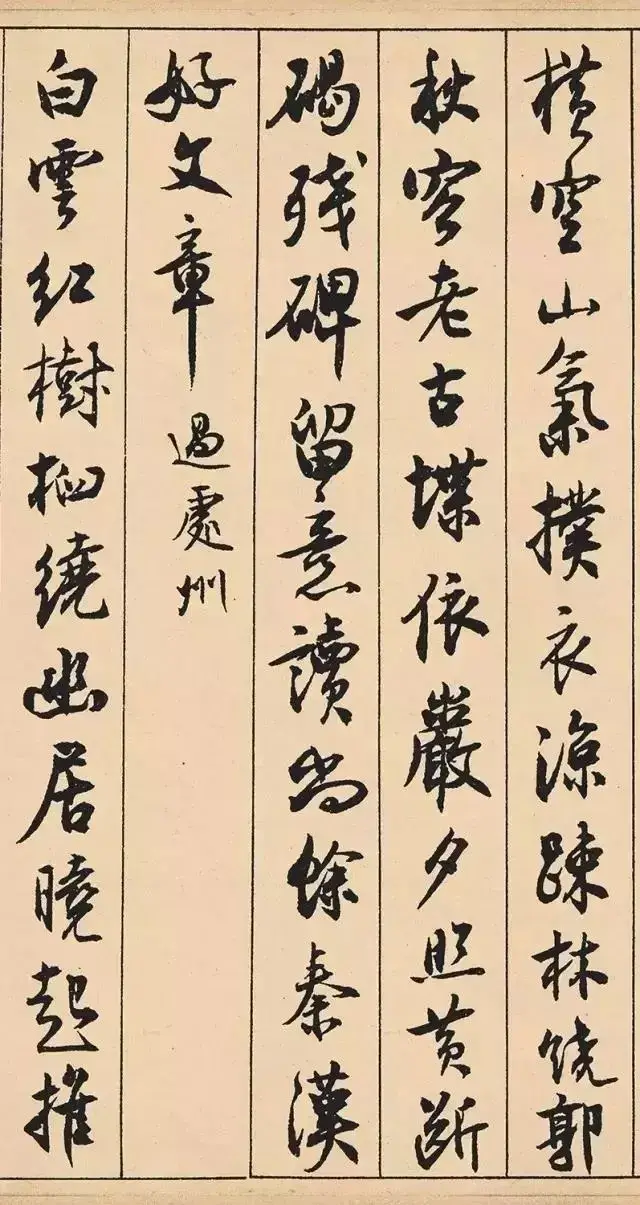 橫空山氣撲衣涼疎林饶郭
秋容老古堞依巖夕照黄断
碣残碑留意讀尚餘秦漢
好文章 過處州
白雲红樹柏繞幽居曉起推